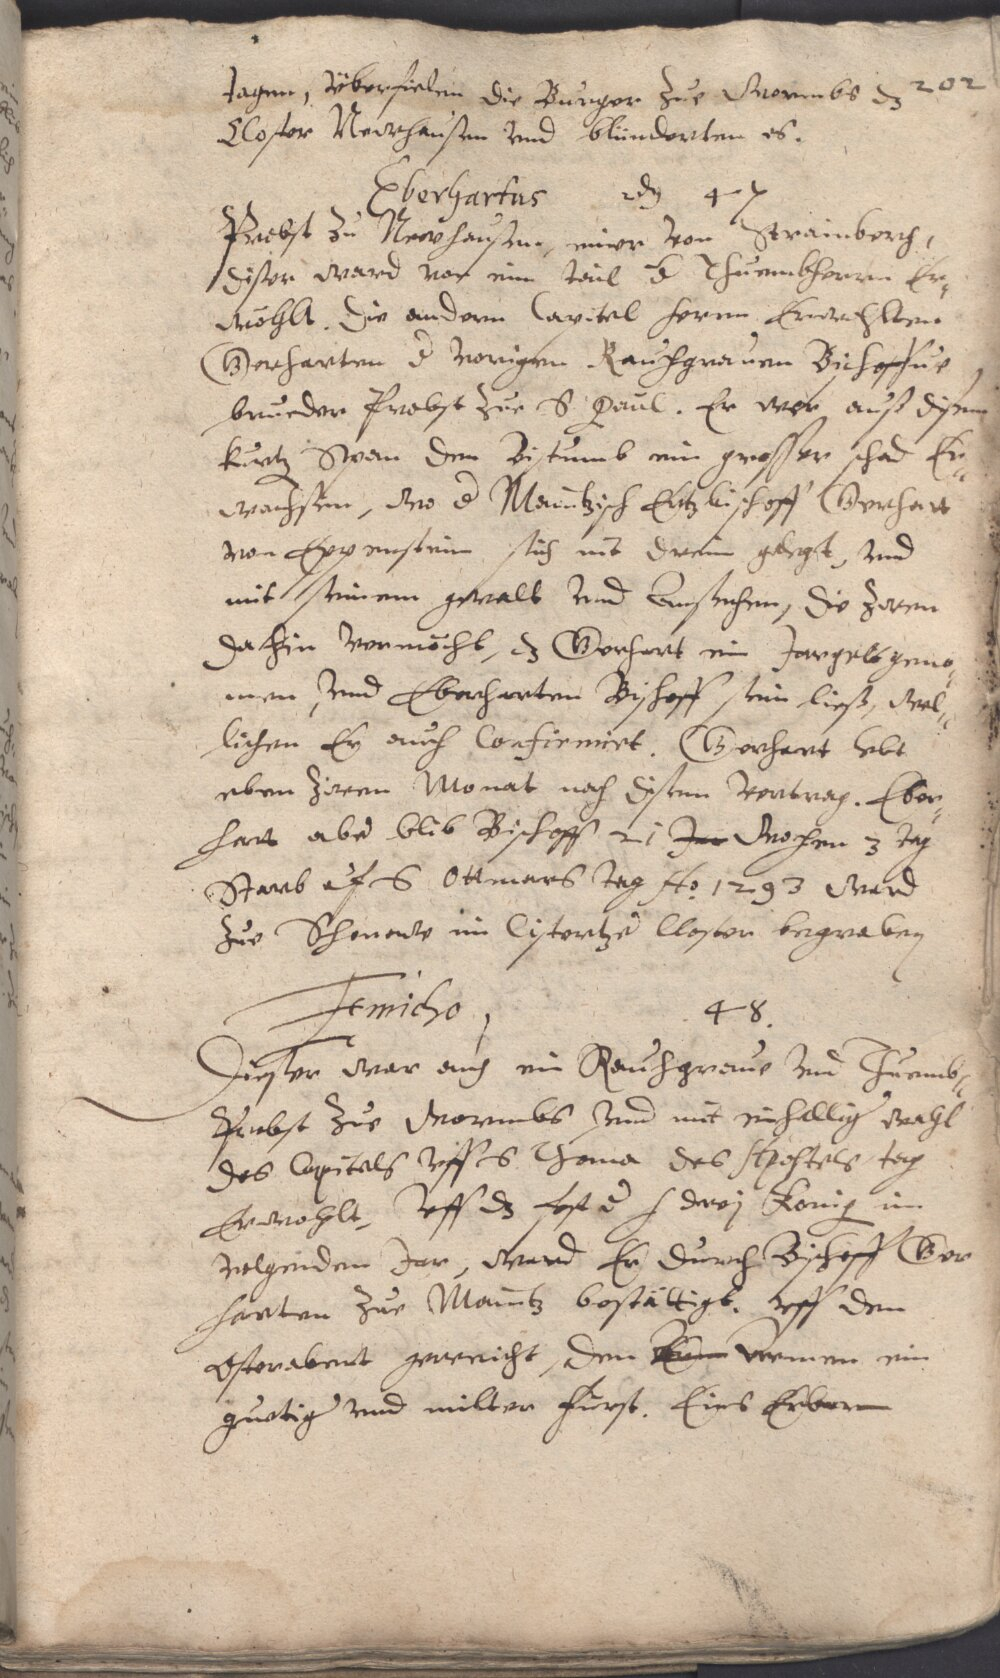 202
tagen, Überfielen die Burger zue Wormbs dz
Closter Newhausen und blünderten es.
Eberhartus 2dy 47
Probst zu Newhausen, einer von Strainberch,
diser ward von eim teil d Thuembherrn Er-
wöhlt. Die andern Capitel herrn Erwehlten
Gerharten d vorigen Rauhgrauen Bischoffue
brueder Probst zue S Paul. Er wer auß disem
kurtz Span den Bistumb ein grosser schad Er-
wachsen, wo d Maintzisch Ertzbischoff Gerhart
von Eppenstein sich nit drein gelegt, und
mit seinem gewalt und Ansehen, die zwen
dahin vermöcht, dz Gerhart ein Jargelt geno-
men, und Eberharten Bischoff sein ließ, wel-
lichen Er auch Confirmirt. Gerhart lebt
eben zwen Monat nach disem vertrag. Eber-
hart aber blib Bischoff 21 Jar Wochen 3 tag
Starb uf S Ottmars tag Ao. 1293 ward
zue Schonow im Cistertzer Closter begraben
Emicho, 48.
Dieser war auch ein Rauhgraue und Thuemb-
Probst zue Wormbs und mit einhellig wahl
des Capitels uff S Thoma des Apostels tag
Erwohlt, uff dz fest d h drey König im
volgenden Jar, ward Er durch Bischoff Ger
harten zue Maintz bestättigt. uff den
Osterabent geweicht, den armen ein
guetig und milter Fürst. Eins Erbarn